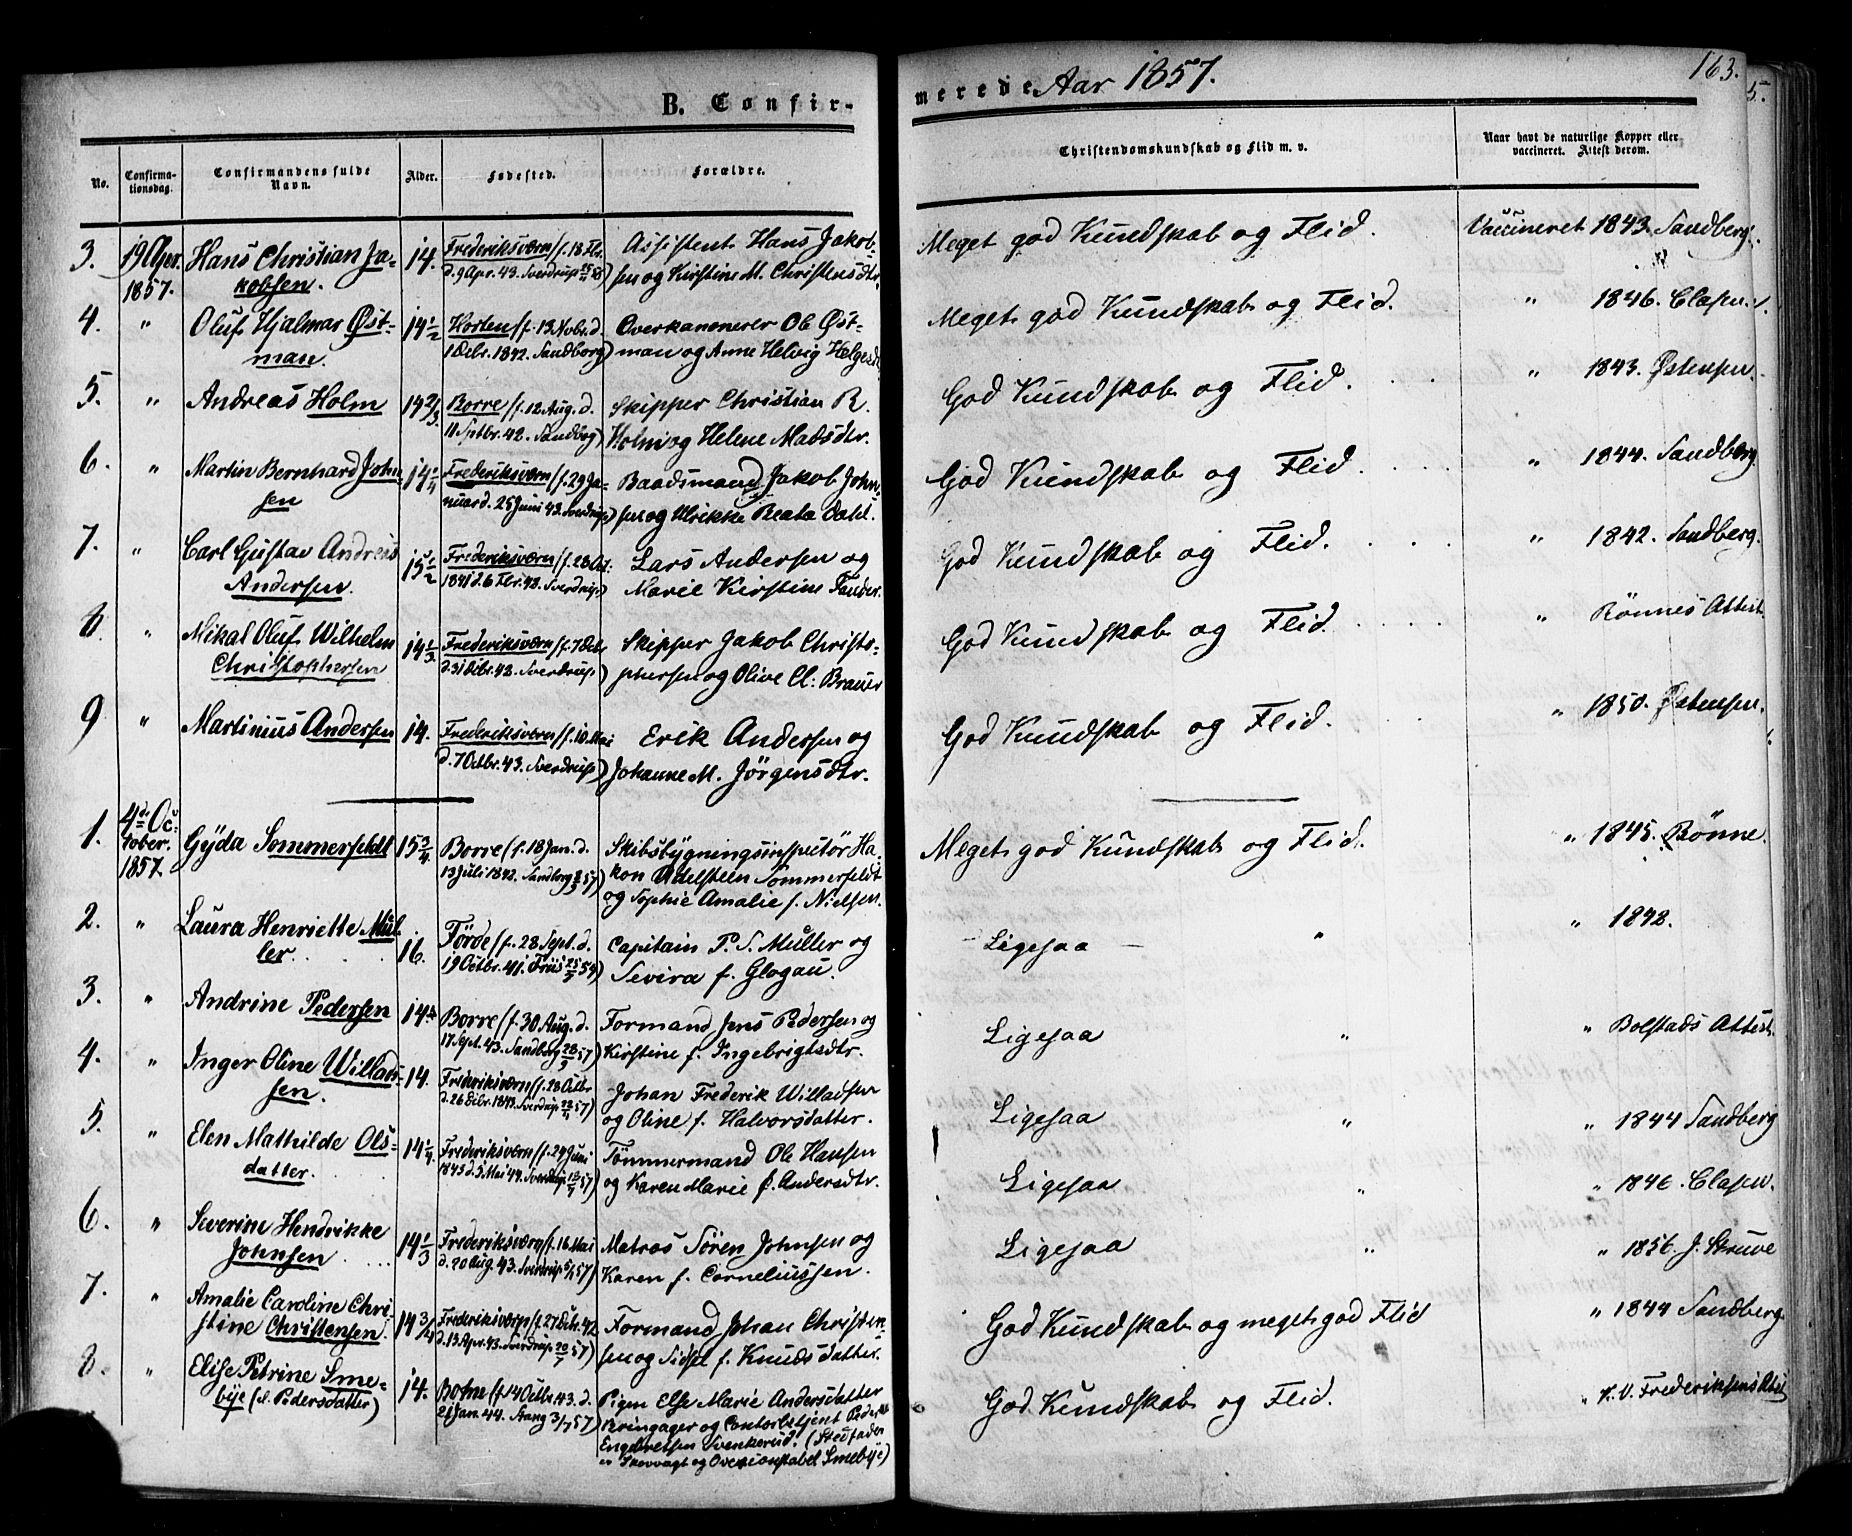 B. Confir-
No.
Confirma-
tionsdag.
Confirmandens fulde
Navn.
Alder.
Fødested.
Forældre.
3. 19 Apr. 1857. Hans Christian Ja- 14. Frederiksværn (f. 18 Febr. Assistent Hans Jakob-
kobsen. d. 9 Apr. 43. Sverdrup) sen og Kirstine M. Christensdtr.
4. " Oluf Hjalmar Øst- 14 1/2 Horten (f. 13 Novb. d. Overkanonerer Ole Øst-
man. 1 Debr. 1842. Sandberg) man og Anne Helvig Helgesdtr.
5. " Andreas Holm 14 2/3 Borre (f. 12 Aug. d. Skipper Christian R.
11 Sptbr. 42. Sandberg) Holm og Helene Madsdtr.
6. " Martin Bernhard John- 14 1/4 Frederiksværn (f. 29 Ja- Baadsmand Jakob John-
sen nuar d. 25 Juni 43. Sverdrup) sen og Ulrikke Beata Dahl.
7. " Carl Gustav Andreas 15 1/2 Frederiksværn (f. 28 Oct. Lars Andersen og
Andersen. 1841 d. 6 Fbr. 42. Sverdrup) Marie Kirstine Tander.
8. " Mikal Oluf Wilhelm 14 1/3 Frederiksværn (f. 7 Debr. Skipper Jakob Christo-
Christophersen d. 31 Debr. 42. Sverdrup) phersen og Olive Cl: Brauer
9 " Martinius Andersen 14. Frederiksværn (f. 10 Mai Erik Andersen og
d. 7 Octbr. 43. Sverdrup) Johanne M. Jörgensdtr.
1. 4de Oc- Gÿda Sommerfeldt 15 3/4 Borre (f. 18 Jan. d. Skibsbygningsinspectör Ha-
tober. 13 Juli 1842. Sandberg 57) kon Adelsteen Sommerfeldt
1857. og Sophie Amalie f. Nielsen.
2. " Laura Henriette Mül- 16. Förde (f. 28 Sept. d. Capitain P. S. Müller og
ler. 19 Octbr. 41. Friis 25/7 57) Sevira f. Glogau.
3. " Andrine Pedersen 14 Borre (f. 30 Aug. d. Formand Jens Pedersen og
17 Sept. 43. Sandberg 28/3 57) Kirstine f. Ingebrigtsdtr.
4. " Inger Oline Willad- 14. Frederiksværn (f. 28 Octbr Johan Frederik Willadsen
sen. d. 26 Debr. 1843. Sverdrup 57) og Oline f. Halvorsdatter.
5. " Elen Mathilde Ols- 14 1/4 Frederiksværn (f. 29 Juni Tömmermand Ole Hansen
datter. 1843 d. 5 Mai 44. Sverdrup 57) og Karen Marie f. Andersdtr.
6. " Severine Hendrikke 14 1/3 Frederiksværn (f. 16 Mai Matros Sören Johnsen og
Johnsen. d. 20 Aug. 43. Sverdrup 57) Karen f. Corneliussen.
7. " Amalie Caroline Chri- 14 3/4 Frederiksværn (f. 27 Debr. 42 Formand Johan Christen-
stine Christensen. d. 13 Apr. 43. Sverdrup 20/7 57) sen og Sidsel f. Knudsdatter.
8. " Elise Petrine Sme- 14. Botne (f. 14 Octbr. 43. d. Pigen Else Marie Andersdatter
bÿe (d. Pedersdatter) 21 Jan 44. Stang 3/7 57) Kringager og Contorbetjent Peder
Engebretsen Svenkerud. (Stedfader
er Skovvogt og Oversionskabel Smebÿe)
merede Aar 1857. 163.
Christendomskundskab og Flid m. v.
Naar havt de naturlige Kopper eller
vaccineret. Attest derom.
Meget god Kundskab og Flid. Vaccineret 1843. Sandberg.
Meget god Kundskab og Flid. " 1846. Clasen.
God Kundskab og Flid. " 1843. Østensen.
God Kundskab og Flid. " 1844. Sandberg.
God Kundskab og Flid. " 1842. Sandberg.
God Kundskab og Flid. " Rönnes Attest.
God Kundskab og Flid. " 1850. Østensen.
Meget god Kundskab og Flid. " 1845. Rönne.
Ligesaa " " 1842.
Ligesaa " " Bolstads Attest
Ligesaa " " 1844 Sandberg
Ligesaa " " 1846. Clasen.
Ligesaa " " 1856. J. Struve
God Kundskab og meget god Flid " 1844 Sandberg
God Kundskab og Flid. " K. V. Frederiksens Attest
5.